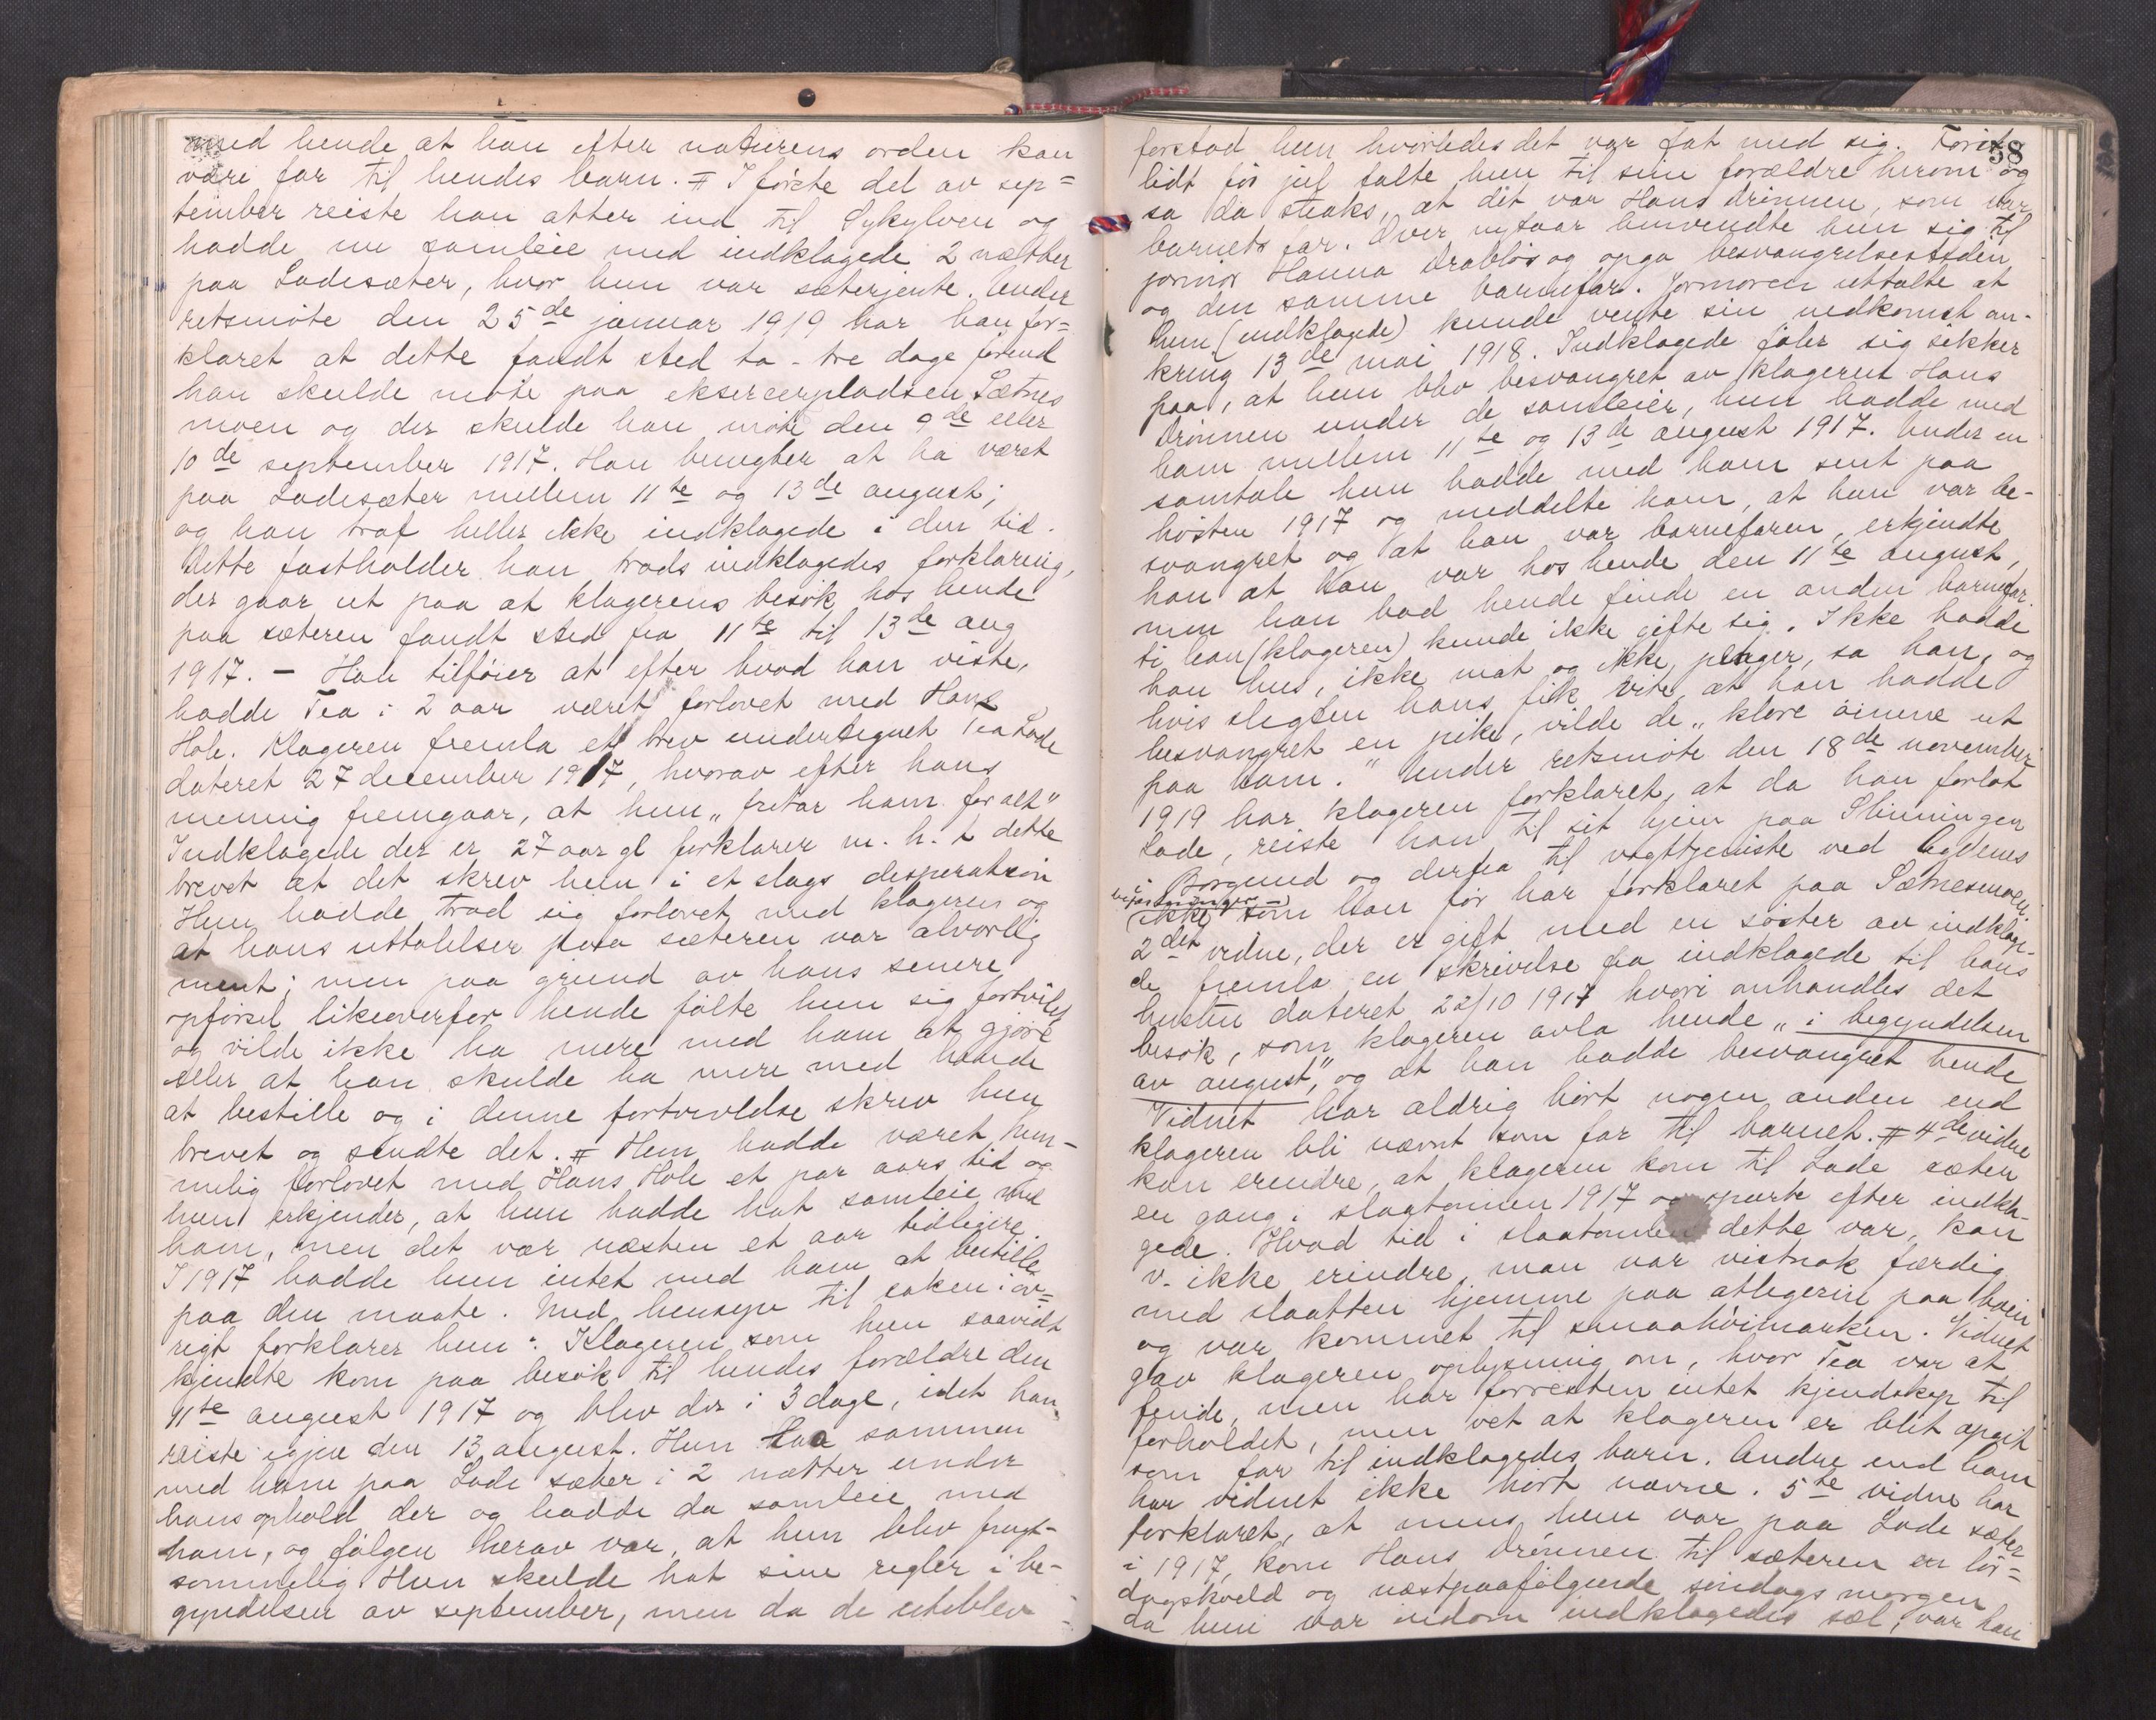 med hende at han efter naturens orden kan
være far til hendes barn. # I første del av sep=
tember reiste han atter ind til Sykylven og
hadde nu samleie med indklagede 2 nætter
paa Ladesæter, hvor hun var sæterjente. Under
retsmøte den 25de januar 1919 har han for=
klaret at dette fandt sted to-tre dage førend
han skulde møte paa eksercerpladsen Sætnes
moen og der skulde han møte den 9de eller
10de september 1917. Han benegter at ha været
paa Ladesæter mellem 11te og 13de august;
og han traf heller ikke indklagede i den tid.
Dette fastholder han trods indklagedes forklaring,
der gaar ut paa at klagerens besøk hos hende
paa sæteren fandt sted fra 11te til 13de aug
1917. - Han tilføier at efter hvad han viste,
hadde Tea i 2 aar været forlovet med Hans
Hole. Klageren fremla et brev undertegnet Tea Lade
dateret 27 december 1917, hvorav efter hans
mening fremgaar, at hun "fritar ham for alt"
Indklagede der er 27 aar gl forklarer m. h. t dette
brevet at det skrev hun i et slags desperation
Hun hadde trod sig forlovet med klageren og
at hans uttalelser paa sæteren var alvorlig
ment; men paa grund av hans senere
opførsel likeoverfor hende følte hun sig fortvilet
og vilde ikke ha mere med ham at gjøre
eller at han skulde ha mere med hende
at bestille og i denne fortvivlelse skrev hun
brevet og sendte det. # Hun hadde været hem-
melig forlovet med Hans Hole et par aars tid og
hun erkjender, at hun hadde hat samleie med
ham, men det var næsten et aar tidligere.
I 1917 hadde hun intet med ham at bestille
paa den maate. Med hensyn til saken i øv=
rigt forklarer hun: Klageren som hun saavidt
kjendte kom paa besøk til hendes forældre den
11te august 1917 og blev der i 3 dage, idet han
reiste igjen den 13 august. Hun laa sammen
med ham paa Lade sæter i 2 nætter under
hans ophold der og hadde da samleie med
ham, og følgen herav var, at hun blev frugt-
sommelig. Hun skulde hat sine regler i be-
gyndelsen av september, men da de uteblev
58
forstod hun hvorledes det var fat med sig. Først
lidt før jul talte hun til sine forældre herom og
sa da straks, at det var Hans Drønnen, som var
barnets far. Over nytaar henvendte hun sig til
jormor Hanna Drabløs og opga besvangrelsestiden
og den samme barnefar. Jormoren uttalte at
hun (indklagede) kunde vente sin nedkomst om-
kring 13de mai 1918. Indklagede føler sig sikker
paa, at hun blev besvangret av klageren Hans
Drønnen under de samleier, hun hadde med
ham mellem 11te og 13de august 1917. Under en
samtale hun hadde med ham sent paa
høsten 1917 og meddelte ham, at hun var be-
svangret og at han var barnefaren, erkjendte
han at han var hos hende den 11te august,
men han bad hende finde en anden barnefar
ti han (klageren) kunde ikke gifte sig. Ikke hadde
han hus, ikke mat og ikke penger, sa han, og
hvis slegten hans fik vite, at han hadde
besvangret en pike, vilde de "klore øinene ut
paa ham." Under retsmøte den 18de november
1919 har klageren forklaret, at da han forlot
Lade, reiste han til sit hjem paa Slinningen
i Borgund og derfra til vagttjeneste ved Agdenes
befæstninger –
ikke som han før har forklaret paa Sætnesmoen.
2det vidne, der er gift med en søster av indklage-
de fremla en skrivelse fra indklagede til hans
hustru dateret 22/10 1917 hvori omhandles det
besøk, som klageren avla hende "i begyndelsen
av august", og at han hadde besvangret hende
Vidnet har aldrig hørt nogen anden end
klageren bli nævnt som far til barnet. # 4de vidne
kan erindre, at klageren kom til Lade sæter
en gang i slaatonnen 1917 og spurte efter indkla-
gede. Hvad tid i slaatonnen dette var, kan
v. ikke erindre, man var vistnok færdig
med slaatten hjemme paa atlegerne paa bøen
og var kommet til smaahøimarken. Vidnet
gav klageren oplysning om, hvor Tea var at
finde, men har forresten intet kjendskap til
forholdet, men vet at klageren er blit opgit
som far til indklagedes barn. Andre end ham
har vidnet ikke hørt nævne. 5te vidne har
forklaret, at mens hun var paa Lade sæter
i 1917, kom Hans Drønnen til sæteren en lør=
dagskveld og næstpaafølgende søndags morgen
da hun var indom indklagedes sæl, var han